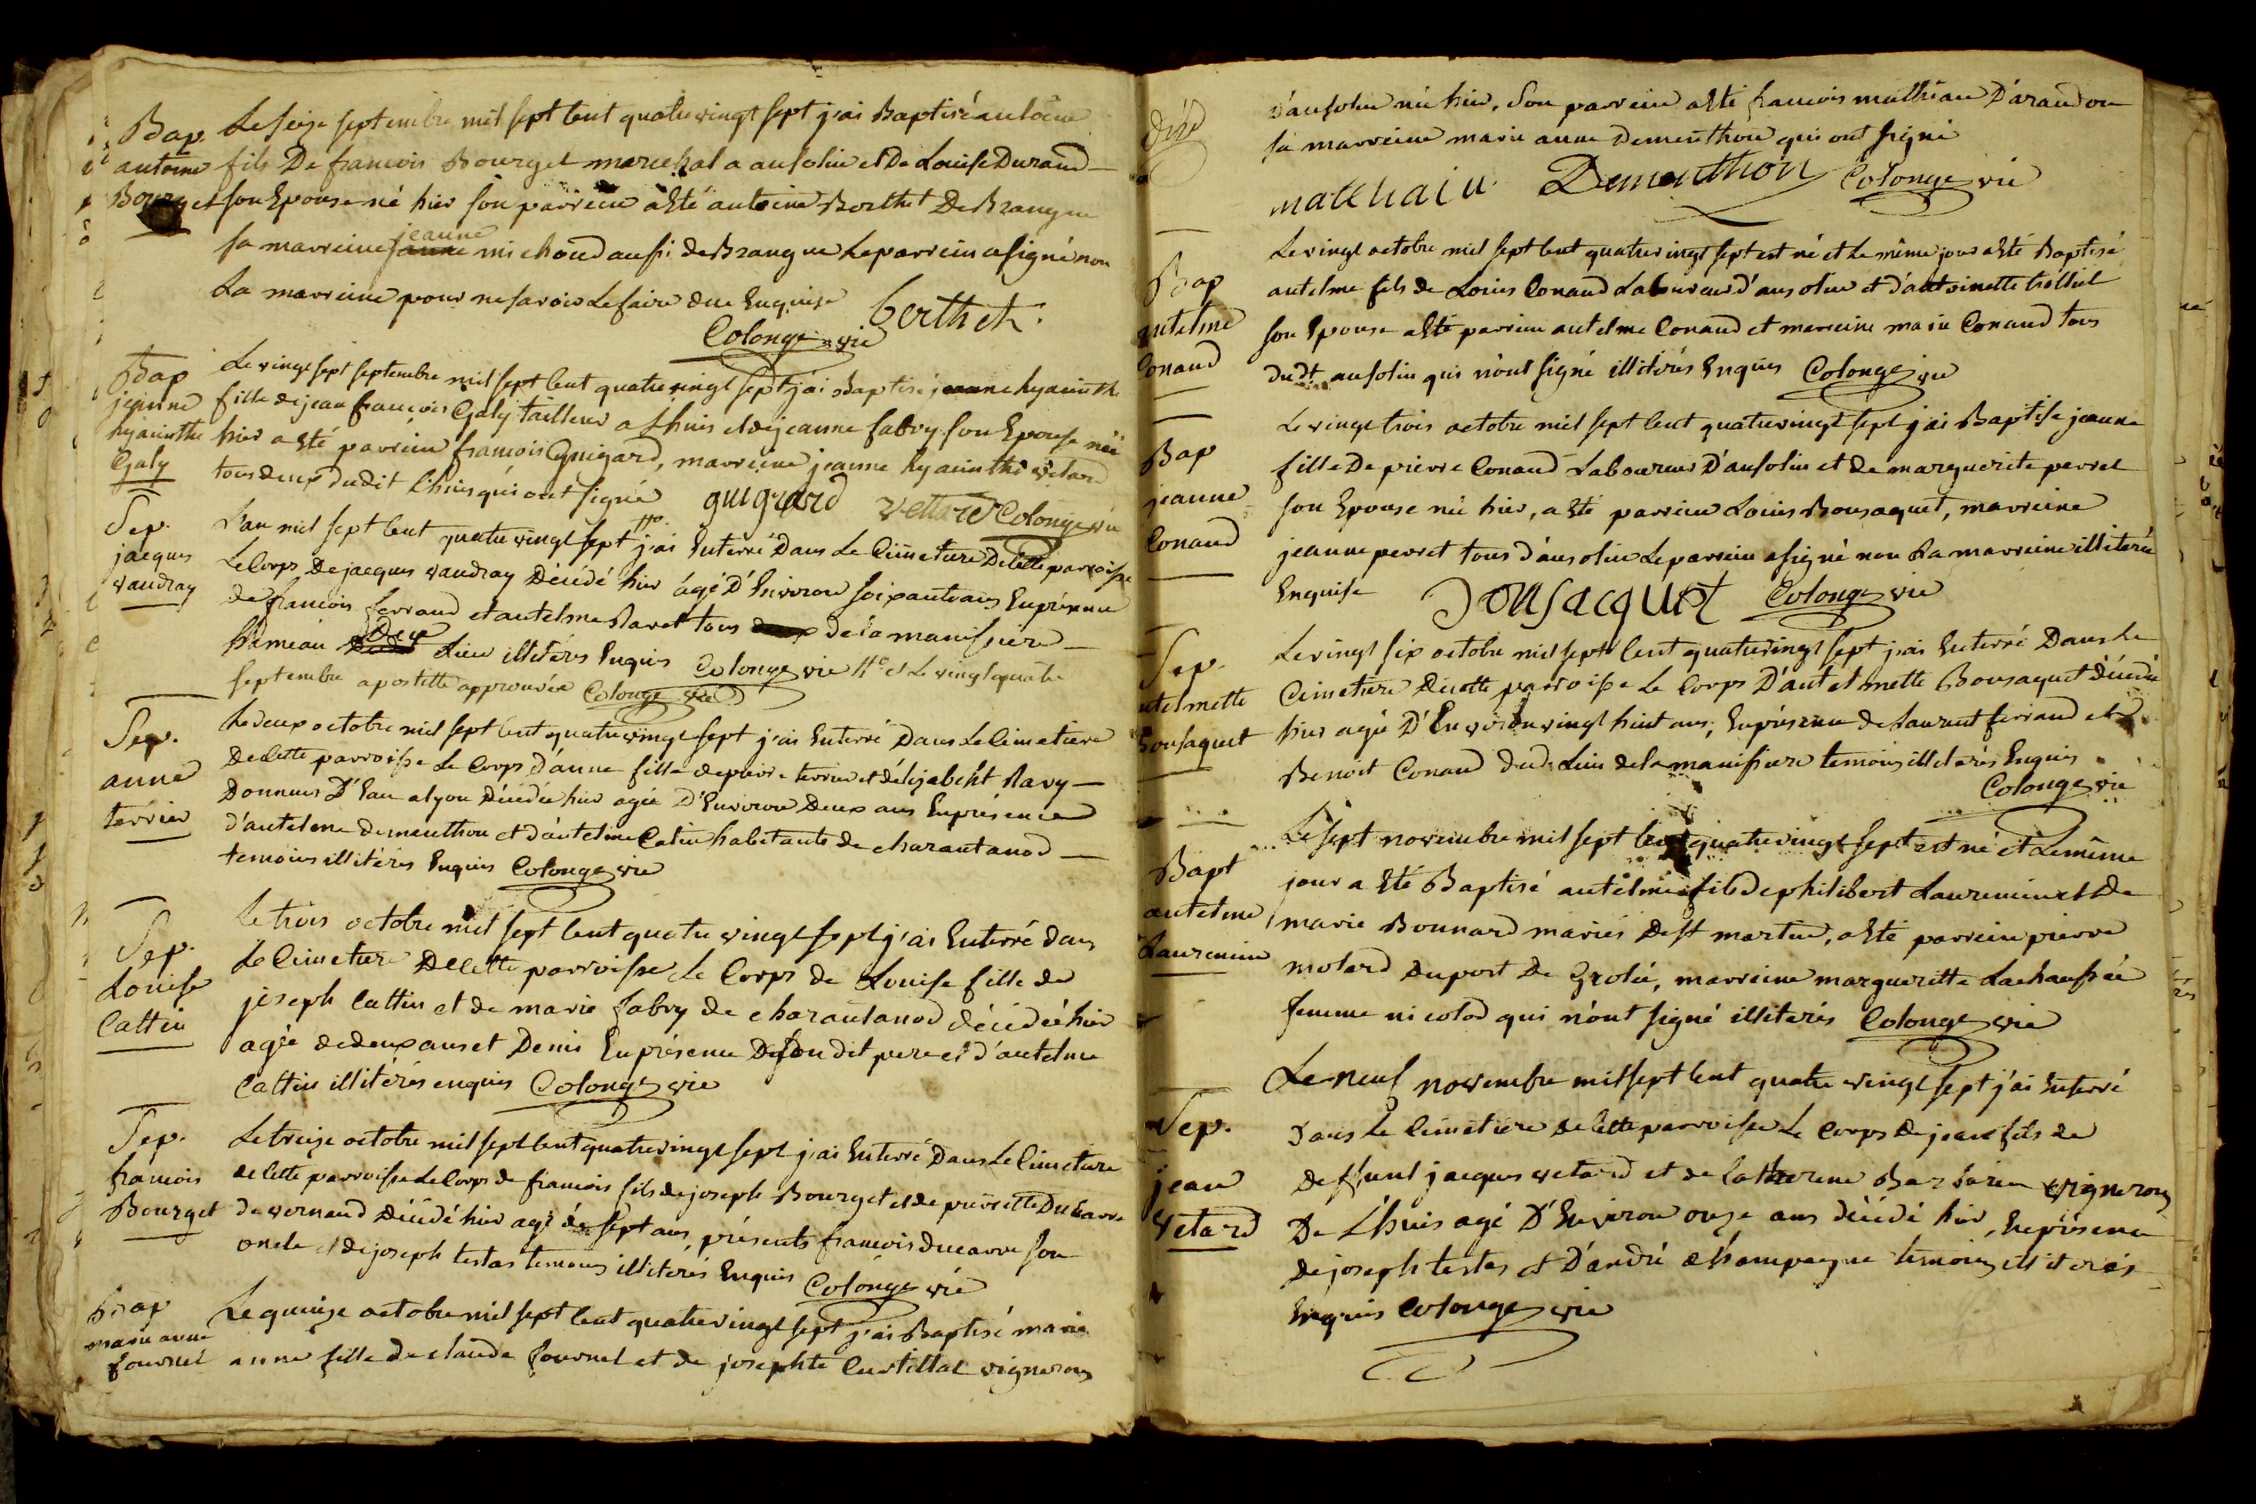 Bap. Le seize septembre mil sept cent quatrevingt sept j'ai Baptisé antoine
antoine fils De francois Bourget marechal a ansolin et De Louise Durand
Bourget son Epouse né hier son parrein a Eté antoine Berthet De Brangue
sa marreine jeanne michoud aussi de Brangue Le parrein a signé non
La marreine pour ne savoir Le faire due Enquise berthet
Colonge vic
Bap Le vingt sept septembre mil sept cent quatrevingt sept j'ai Baptisé jeanne hyacinthe
jeanne fille de jean francois Galy tailleur a Lhuis et de jeanne fabvry son Epouse née
hyacinthe hier a Eté parrein francois Guigard, marreine jeanne hyacinthe vetard
Galy tous deux dudit Lhuis qui ont signé guigard vettard Colonge vic
Sep. L'an mil sept cent quatrevingt sept j'ai Enterré Dans Le Cimetiere De cette parroisse
jacques Le Corps De jacques vaudray Décédé hier agé D'Environ soixante ans En présence
vaudray de francois ferrand et antelme Ravet tous de la manissiere
hameau Du Lieu illiterés Enquis Colonge vic et Le vingt quatre
septembre apostille approuvée Colonge vic
Sep. Le deux octobre mil sept cent quatrevingt sept j'ai Enterré Dans Le Cimetiere
De cette parroisse Le Corps d'anne fille de pierre terrier et d'élizabeht Ravy
anne Donneur D'Eau a Lyon Décédée hier agée D'Environ Deux ans En présence
terrier d'antelme dementhon et d'antelme Catin habitants de charantanod
temoins illitérés Enquis Colonge vic
Sep. Le trois octobre mil sept cent quatre vingt sept j'ai Enterré dans
Louise Le Cimetiere De cette parroisse Le Corps de Louise fille de
Cattin joseph Cattin et de marie fabvry de charantanod décédée hier
agée de deux ans et Demi En présence De son dit pere et d'antelme
Cattin illitérés enquis Colonge vic
Sep. Le treize octobre mil sept cent quatrevingt sept j'ai Enterré Dans Le Cimetiere
francois de cette parroisse Le Corps de francois fils de joseph Bourget et de pierrette Ducarre
Bourget de vernand Décédé hier agé de sept ans, présents francois ducarre son
oncle et de joseph testas temoins illiterés Enquis Colonge vic
Bap Le quinze octobre mil sept cent quatrevingt sept j'ai Baptisé marie
marie anne
fournel anne fille de claude fournel et de josephte Curtillat vignerons
d'ansolin née hier, Son parrein a Eté francois mathian D'arandon
sa marreine marie anne Dementhon qui ont signé
matthain Dementhon Colonge vic
Le vingt octobre mil sept cent quatrevingt sept est né et Le même jour a Eté Baptisé
Bap antelme fils de Louis Conand Laboureur d'ansolin et d'antoinette trolliet
antelme son Epouse a Eté parrein antelme Conand et marreine marie Conand tous
Conand dudt. ansolin qui n'ont signé illitérés Enquis Colonge vic
Le vingt trois octobre mil sept cent quatrevingt sept j'ai Baptisé jeanne
Bap fille De pierre Conand Laboureur D'ansolin et de marguerite perret
jeanne son Epouse née hier, a Eté parrein Louis Bonsaquet, marreine
Conand jeanne perret tous d'ansolin Le parrein a signé non La marreine illiterée
Enquise Bonsacquet Colonge vic
Sep. Le vingt six octobre mil sept cent quatrevingt sept j'ai Enterré Dans Le
antelmette Cimetiere De cette parroisse Le Corps D'antelmette Bonsaquet Décédée
Bonsaquet hier agée D'Environ vingt huit ans, En présence de Laurent ferrand et
Benoit Conand dud. Lieu de la manissiere temoins illiterés Enquis
Colonge vic
Le sept novembre mil sept cent quatrevingt sept est né et Le même
Bapt jour a Eté Baptisé antelme fils de philibert Laurencin et De
antelme marie Bonnard mariés De st martin, a Eté parrein pierre
Laurencin molard Du port De Grolée, marreine margueritte Lachaussée
femme nicolod qui n'ont signé illiterés Colonge vic
Le neuf novembre mil sept cent quatre vingt sept j'ai Enterré
Sep. Dans Le Cimetiere de cette parroisse Le Corps De jean fils de
jean deffunt jacques vetard et de Catherine Barbarin vignerons
vetard De L'huis agé D'Environ onze ans décédé hier, En présence
De joseph testas et D'andré champagne temoins illiterés
Enquis Colonge vic